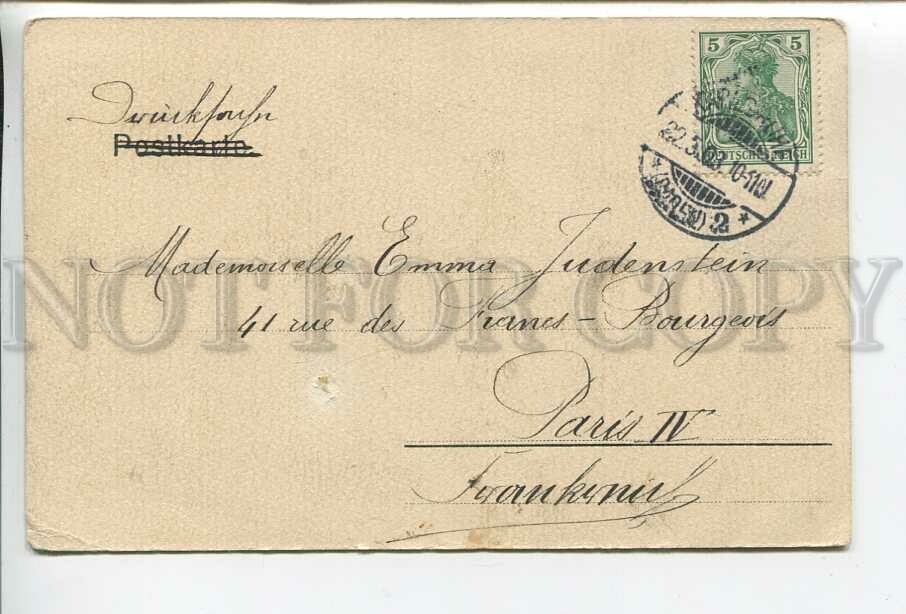 5 5
22.3.
10-11
2
Drucksache
Postkarte
Mademoiselle Emma Judenstein
41 rue des Francs-Bourgeois
Paris IV
Frankreich
NOT FOR COPY